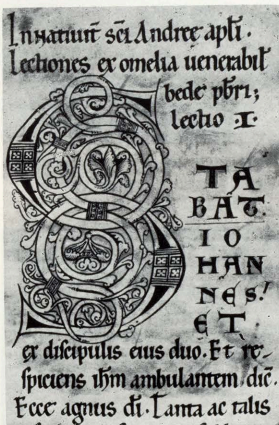 In natiuit̄ sc̄i Andree apl̄i.
Lectiones ex omelia uenerabil̄
bede pb̄ri;
lectio I.
S TA
BAT.
IO
HAN
NES.
ET.
ex discipulis eius duo. Et re-
spiciens ih̄m ambulantem, dic̄.
Ecce agnus d̄i. Tanta ac talis